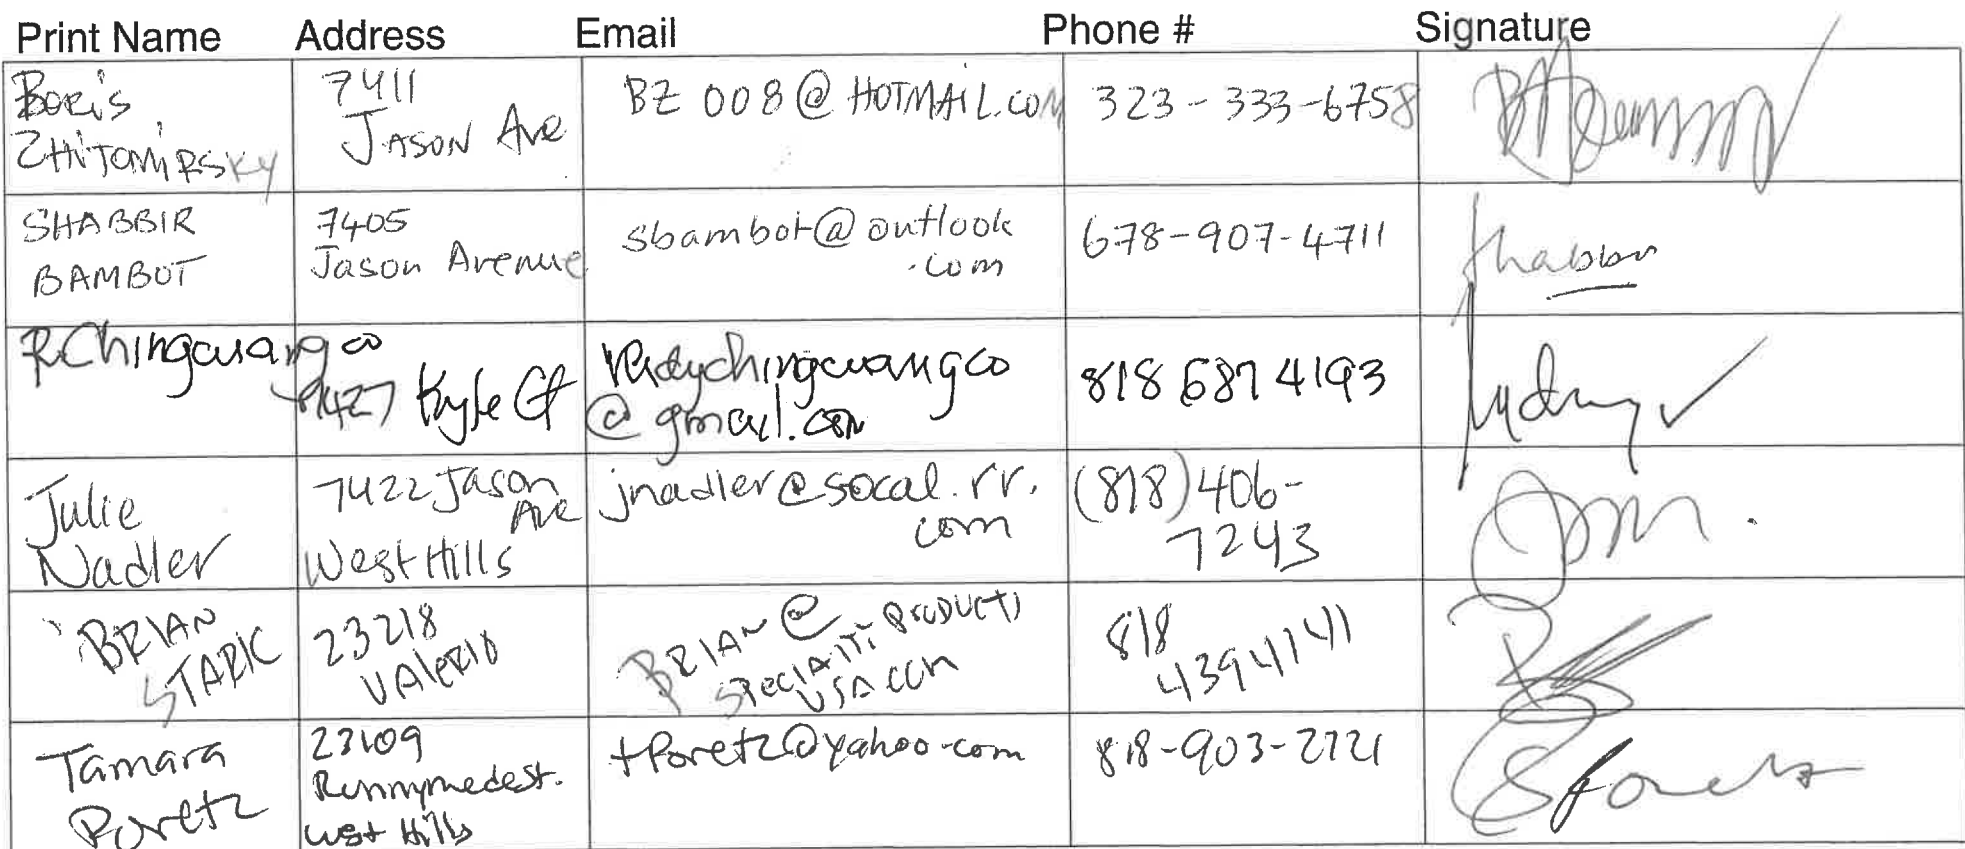 Print Name Address Email Phone # Signature
Boris
ZHITOMIRSKY
7411
JASON Ave
BZ008@HOTMAIL.COM
323-333-6758
SHABBIR
BAMBOT
7405
Jason Avenue
sbambot@outlook
.com
678-907-4711
Shabbir
RChingcuangco
8427 Kyle Ct
Rudychingcuangco
@gmail.com
818 687 4193
Julie
Nadler
7422 Jason
Ave
West Hills
jnadler@socal.rr.
com
(818)406-
7243
BRIAN
STARK
23218
VALERIO
BRIAN@
SPECIALTI PRODUCTS
USA.COM
818
4394141
Tamara
Poretz
23109
Runnymede st.
West Hills
tporetz@yahoo.com
818-903-2721